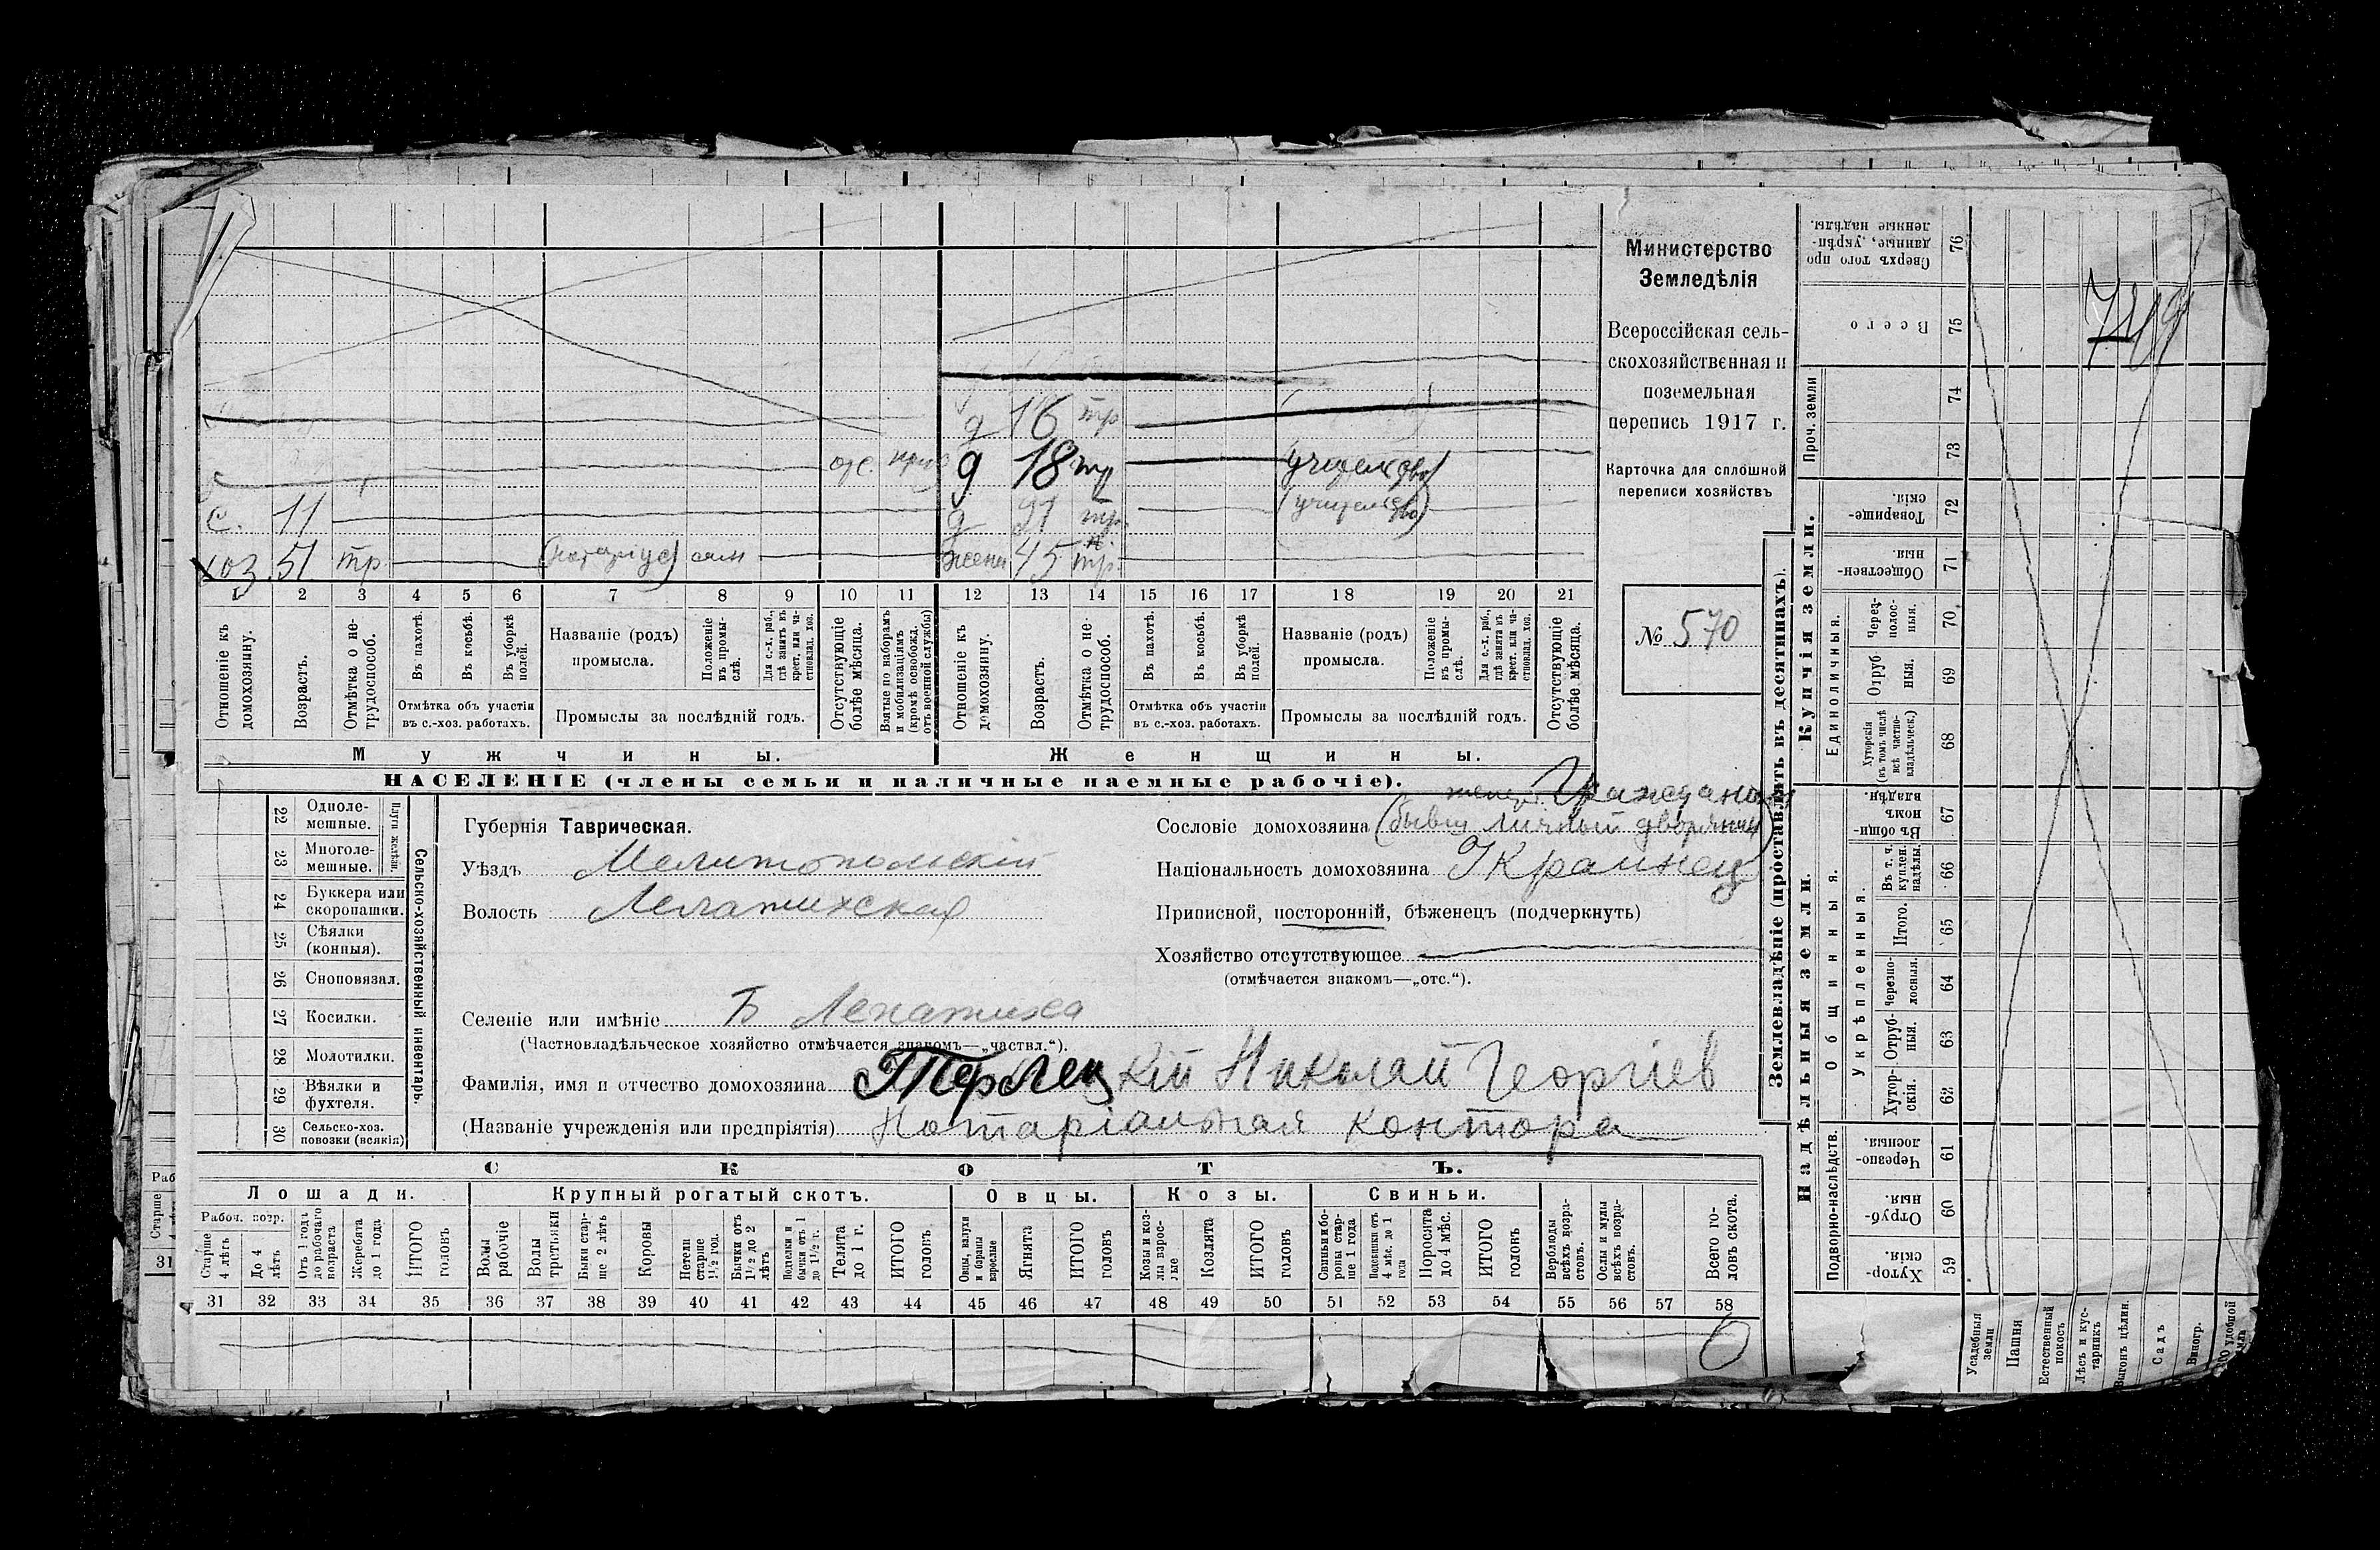 Министерство
Земледѣлія
Всероссійская сель-
скохозяйственная и
поземельная
перепись 1917 г.
Карточка для сплошной
переписи хозяйствъ
№ 570
д 16 тр
отс. д 18 тр (учительство)
с. 11 д 21 тр. (учительство)
хоз. 51 тр (нотаріус) жена 45 тр.
1 2 3 4 5 6 7 8 9 10 11 12 13 14 15 16 17 18 19 20 21
Отношеніе къ домохозяину.
Возрастъ.
Отмѣтка о не-трудоспособ.
Въ пахотѣ.
Въ косьбѣ.
Въ уборкѣ полей.
Отмѣтка объ участіи
въ с.-хоз. работахъ.
Названіе (родъ)
промысла.
Положеніе въ промы-слѣ.
Для с.-х. раб., гдѣ занятъ въ крест. или ча-стновлад. хоз.
Промыслы за послѣдній годъ.
Отсутствующіе болѣе мѣсяца.
Взятые по наборамъ и мобилизаціямъ (кромѣ освобожд. отъ военной службы)
Отношеніе къ домохозяину.
Возрастъ.
Отмѣтка о не-трудоспособ.
Въ пахотѣ.
Въ косьбѣ.
Въ уборкѣ полей.
Отмѣтка объ участіи
въ с.-хоз. работахъ.
Названіе (родъ)
промысла.
Положеніе въ промы-слѣ.
Для с.-х. раб., гдѣ занята въ крест. или ча-стновлад. хоз.
Промыслы за послѣдній годъ.
Отсутствующіе болѣе мѣсяца.
Мужчины. Женщины.
НАСЕЛЕНІЕ (члены семьи и наличные наемные рабочіе).
22 Одноле-мешные.
23 Многоле-мешные.
Плуги желѣзн.
24 Буккера или скоропашки.
25 Сѣялки (конныя).
26 Сноповязал.
27 Косилки.
28 Молотилки.
29 Вѣялки и фухтеля.
30 Сельско-хоз. повозки (всякія)
Сельско-хозяйственный инвентарь.
Губернія Таврическая.
Уѣздъ Мелитопольскій
Волость Лепатихская
Гражданин
Сословіе домохозяина (бывш личный дворянин)
Національность домохозяина Украинец
Приписной, посторонній, бѣженецъ (подчеркнуть)
Хозяйство отсутствующее
(отмѣчается знакомъ—„отс.“).
Селеніе или имѣніе Б Лепатиха
(Частновладѣльческое хозяйство отмѣчается знакомъ—„частвл.“).
Фамилія, имя и отчество домохозяина Терлецкій Николай Георгіев
(Названіе учрежденія или предпріятія) Нотаріальная контора
СКОТЪ.
Лошади. Крупный рогатый скотъ. Овцы. Козы. Свиньи.
Рабоч. возр.
Старше 4 лѣтъ
До 4 лѣтъ
Отъ 1 года до рабочаго возраста
Жеребята до 1 года
ИТОГО головъ
Волы рабочіе
Волы третьяки
Быки стар-ше 2 лѣтъ
Коровы
Нетели старше 1 1/2 год.
Бычки отъ 1 1/2 до 2 лѣтъ
Подтелки и бычки отъ 1 до 1 1/2 г.
Телята до 1 г.
ИТОГО головъ
Овцы, валухи и бараны взрослые
Ягнята
ИТОГО головъ
Козы и коз-лы взрос-лые
Козлята
ИТОГО головъ
Свиньи и бо-ровы стар-ше 1 года
Подсвинки отъ 4 мѣс. до 1 года
Поросята до 4 мѣс.
ИТОГО головъ
Верблюды всѣхъ возра-стовъ.
Ослы и мулы всѣхъ возра-стовъ.
Всего го-ловъ скота.
31 32 33 34 35 36 37 38 39 40 41 42 43 44 45 46 47 48 49 50 51 52 53 54 55 56 57 58
0
Землевладѣніе (проставлять въ десятинахъ).
Надѣльныя земли. Купчія земли.
Проч. земли
Подворно-наслѣдств.
Общинныя.
Укрѣпленныя.
Единоличныя.
76 Сверхъ того про-данные, укрѣп-ленные надѣлы.
75 Всего
74
73
72 Товарище-скія.
71 Обществен-ныя.
70 Через-полос-ныя.
69 Отруб-ныя.
68 Хуторскія (въ томъ числѣ всѣ частно-владѣльческ.)
67 Въ общи-номъ владѣн.
66 Въ т. ч. куплен. надѣлы.
65 Итого.
64 Черезпо-лосныя.
63 Отруб-ныя.
62 Хутор-скія.
61 Черезпо-лосныя.
60 Отруб-ныя.
59 Хутор-скія.
Усадебныя земли
Пашня
Естественный покосъ
Лѣсъ и кус-тарникъ
Выгонъ цѣлин.
Садъ
Виногр.
Старше
31